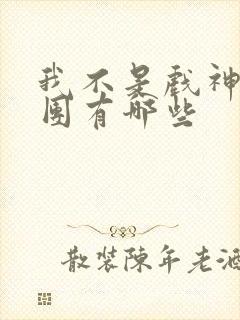 我不是戏神
团有哪些
散装陈年老酒